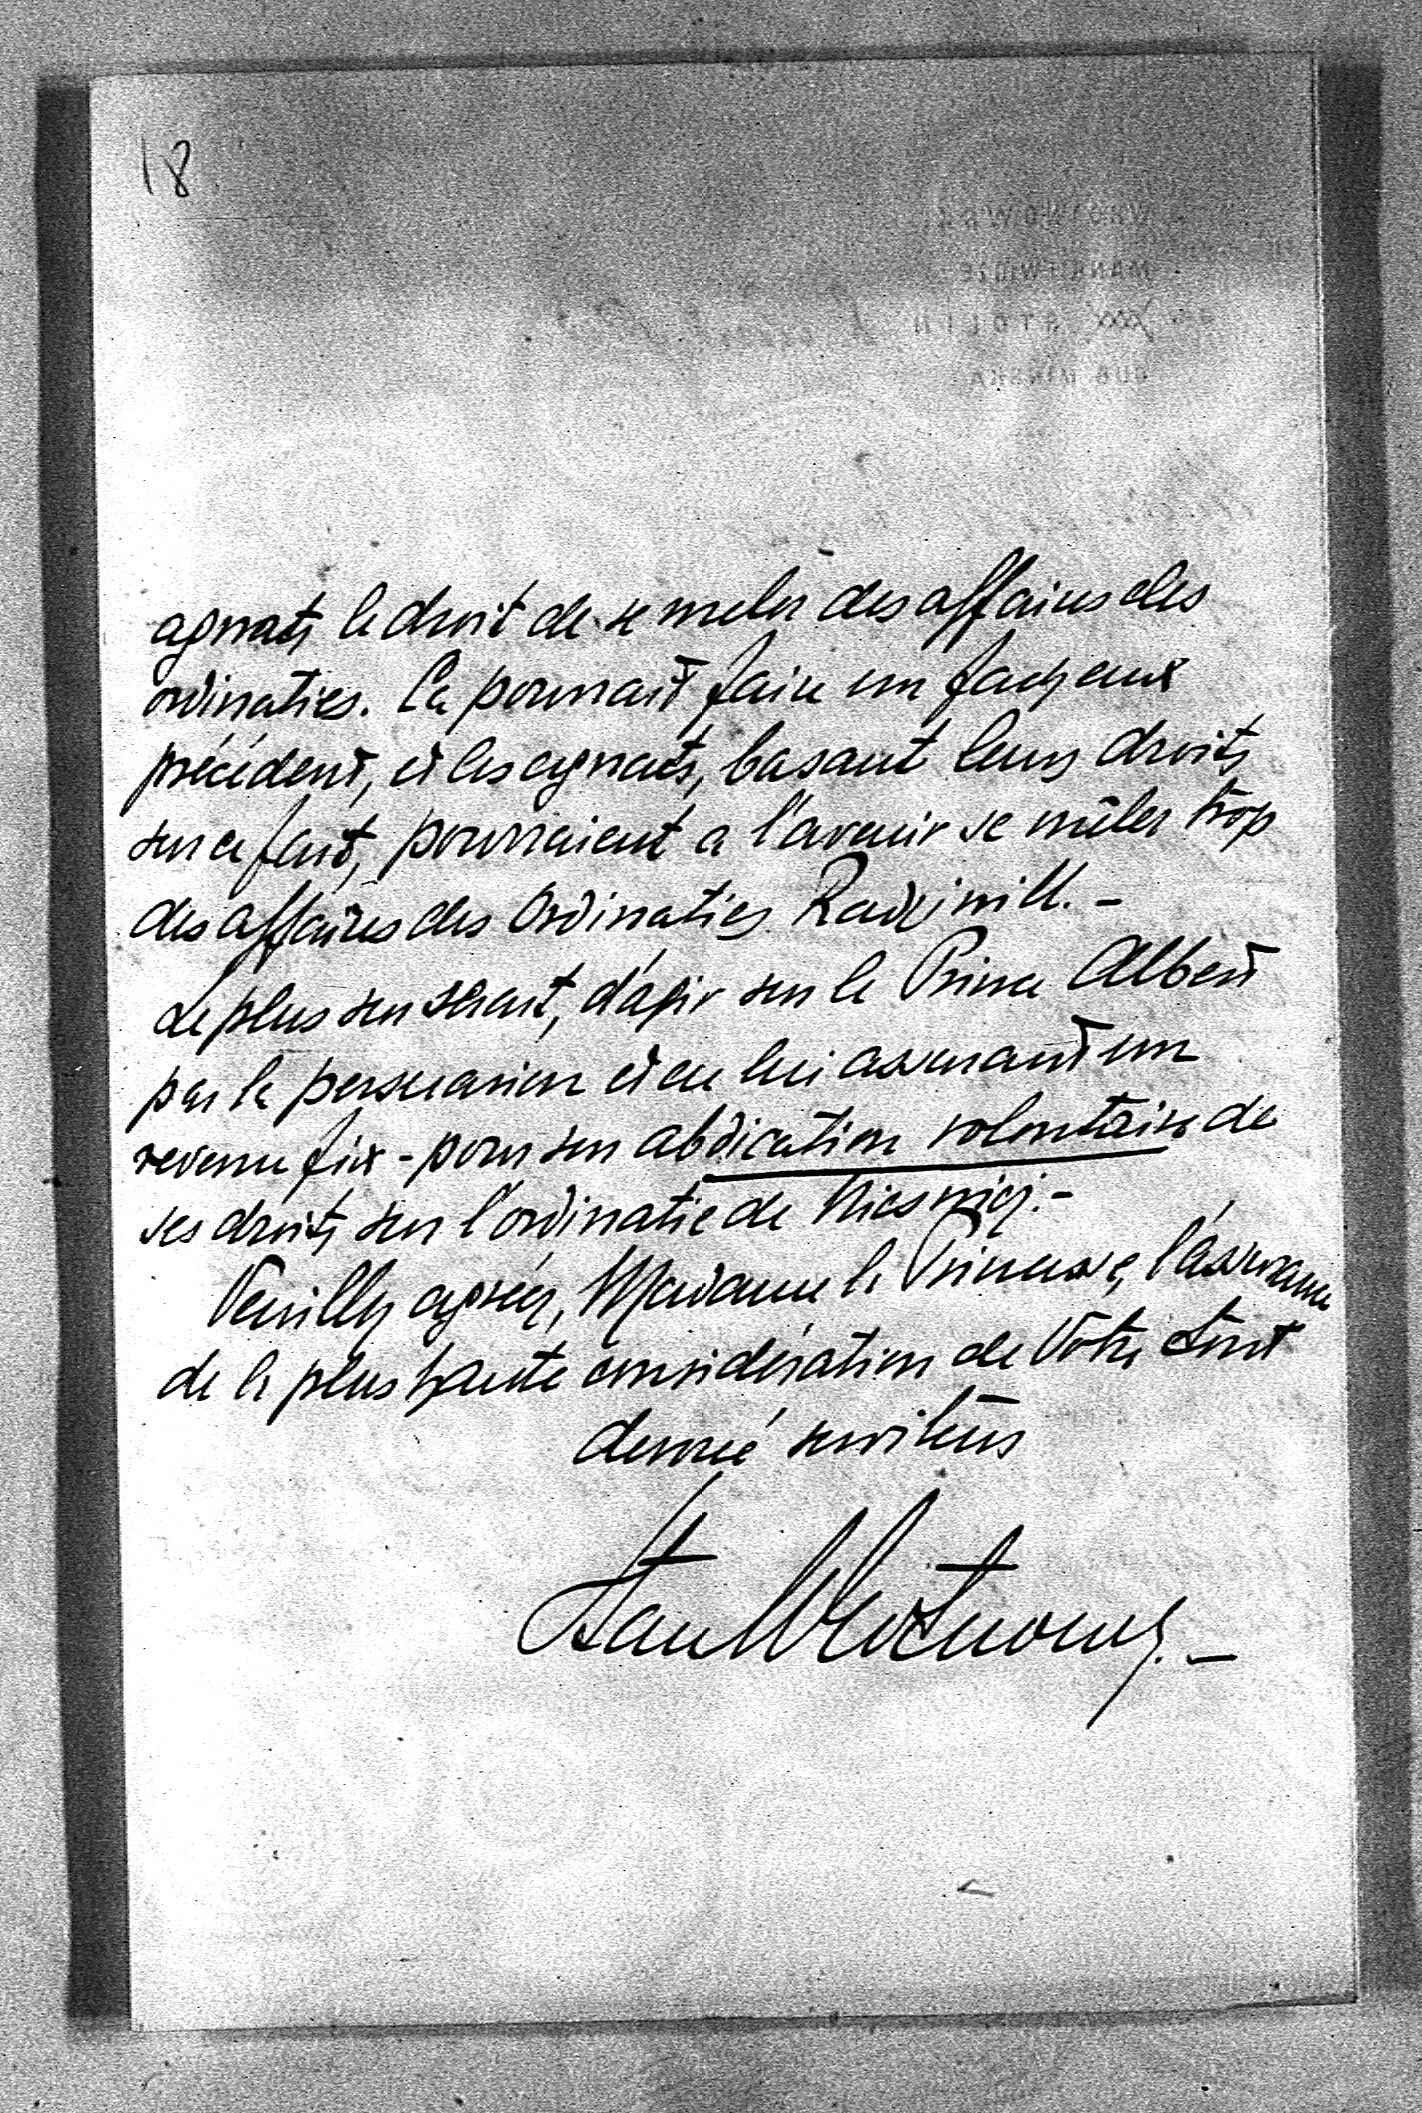 18
agnats le droit de se meler des affaires des
ordinaties. Ca pourrait faire un facheux
précédent, et les agnats, basant leurs droits
sur ce fait, pourraient a l'avenir se mêler trop
des affaires des Ordinaties Radziwill. -
Le plus sur serait, d'agir sur le Prince Albert
par la persuasion et en lui assurant un
revenu fix - pour son abdication volontaire de
ses droits sur l'ordinatie de Nieswiez. -
Veuillez agréer, Madame la Princesse, l'assurance
de la plus haute considération de Votre tout
devoué serviteur
Stan Wrotnowski. -